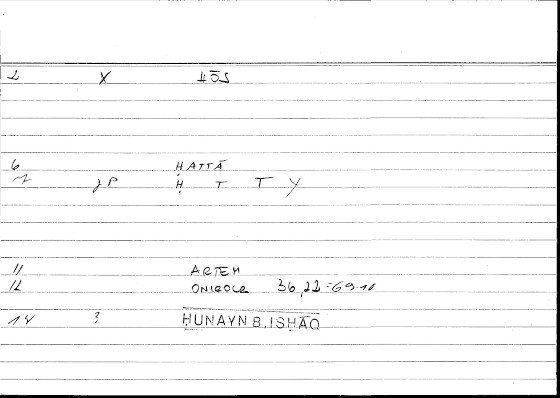 2 X ἕως
6 ḤATTĀ
7 jP Ḥ T T Y
11 ARTEM
12 ONIROCR 36,22 = 69.10
14 ? ḤUNAYN B. ISḤĀQ